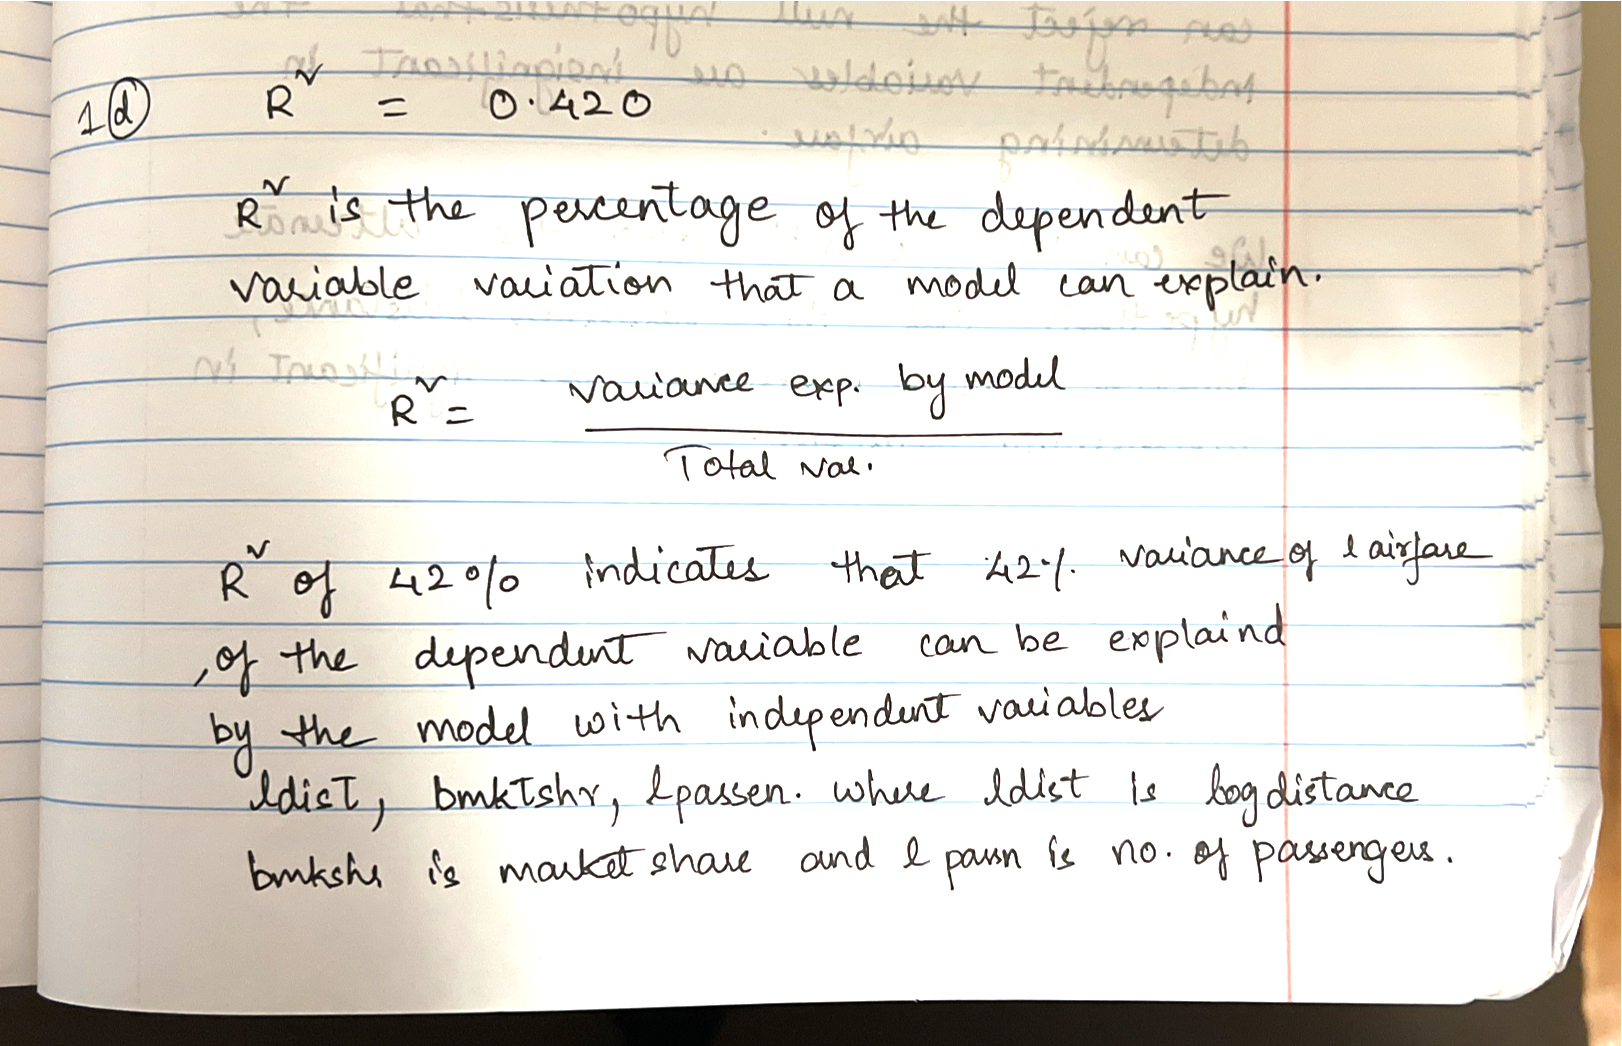 1(d) R² = 0.420
R² is the percentage of the dependent
variable variation that a model can explain.
R² = variance exp. by model
Total var.
R² of 42% indicates that 42% variance of lairfare
, of the dependent variable can be explaind
by the model with independent variables
ldist, bmktshr, lpassen. where ldist is log distance
bmkshr is market share and l passn is no. of passengers.